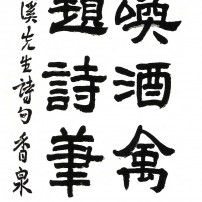 喚酒禽
題詩筆
溪先生詩句香泉